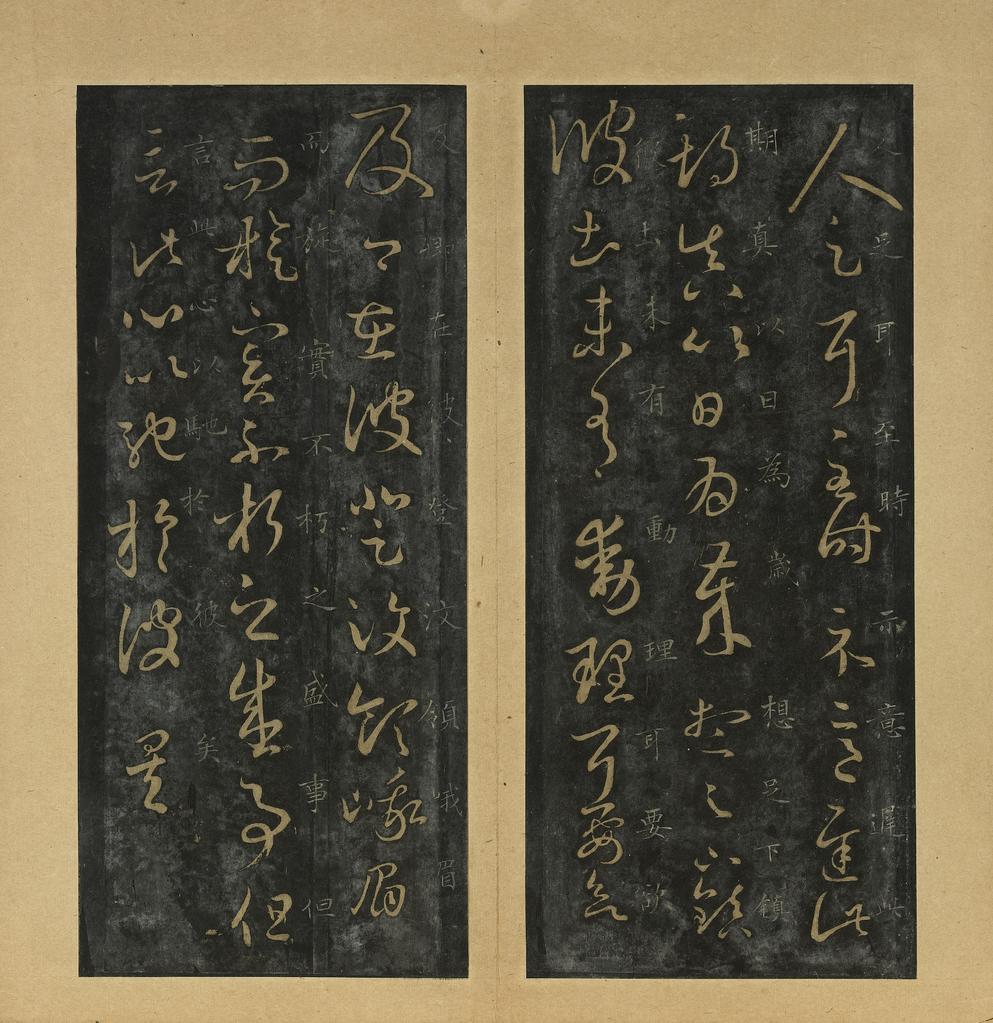 人足耳至時示意遲此
人足耳至時示意遲此
期真以日為歲想足下鎮
期真以日為歲想足下鎮
彼土未有動理耳要欲
彼土未有動理耳要欲
及卿在彼登汶領峨眉
及卿在彼登汶領峨眉
而旋實不朽之盛事但
而旋實不朽之盛事但
言此心以馳於彼矣
言此心以馳於彼矣